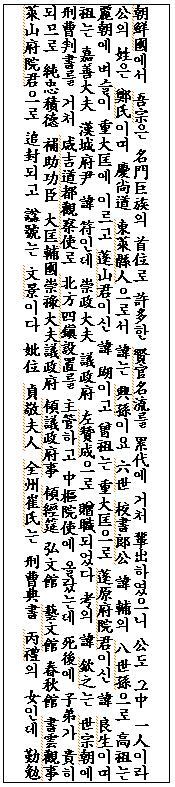 朝鮮國에서 吾宗은 名門巨族의 首位로 許多한 賢官名流를 累代에 거처 輩出하였으니 公도 그中 一人이라
公의 姓은 鄭氏이며 慶尙道 東萊縣人으로서 諱는 興孫이요 六世 校書郞公 諱 輔의 八世孫으로 高祖는
麗朝에 벼슬이 重大匡에 이르고 蓬山君이신 諱 瑚이고 曾祖는 重大匡으로 蓬原府院君이신 諱 良生이며
祖는 嘉善大夫 漢城府尹 諱 符인데 崇政大夫 議政府 左贊成으로 贈職되었다 考의 諱 欽之는 世宗朝에
刑曹判書를 거처 咸吉道都觀察使로 北方四鎭設置를 主管하고 中樞院使에 올랐는데 死後에 子弟가 貴히
되므로 純忠積德 補助功臣 大匡輔國崇祿大夫議政府 領議政府事 領經筵 弘文館 藝文館 春秋館 書雲觀事
萊山府院君으로 追封되고 諡號는 文景이다 妣位 貞敬夫人 全州崔氏는 刑曹典書 丙禮의 女인데 勤勉